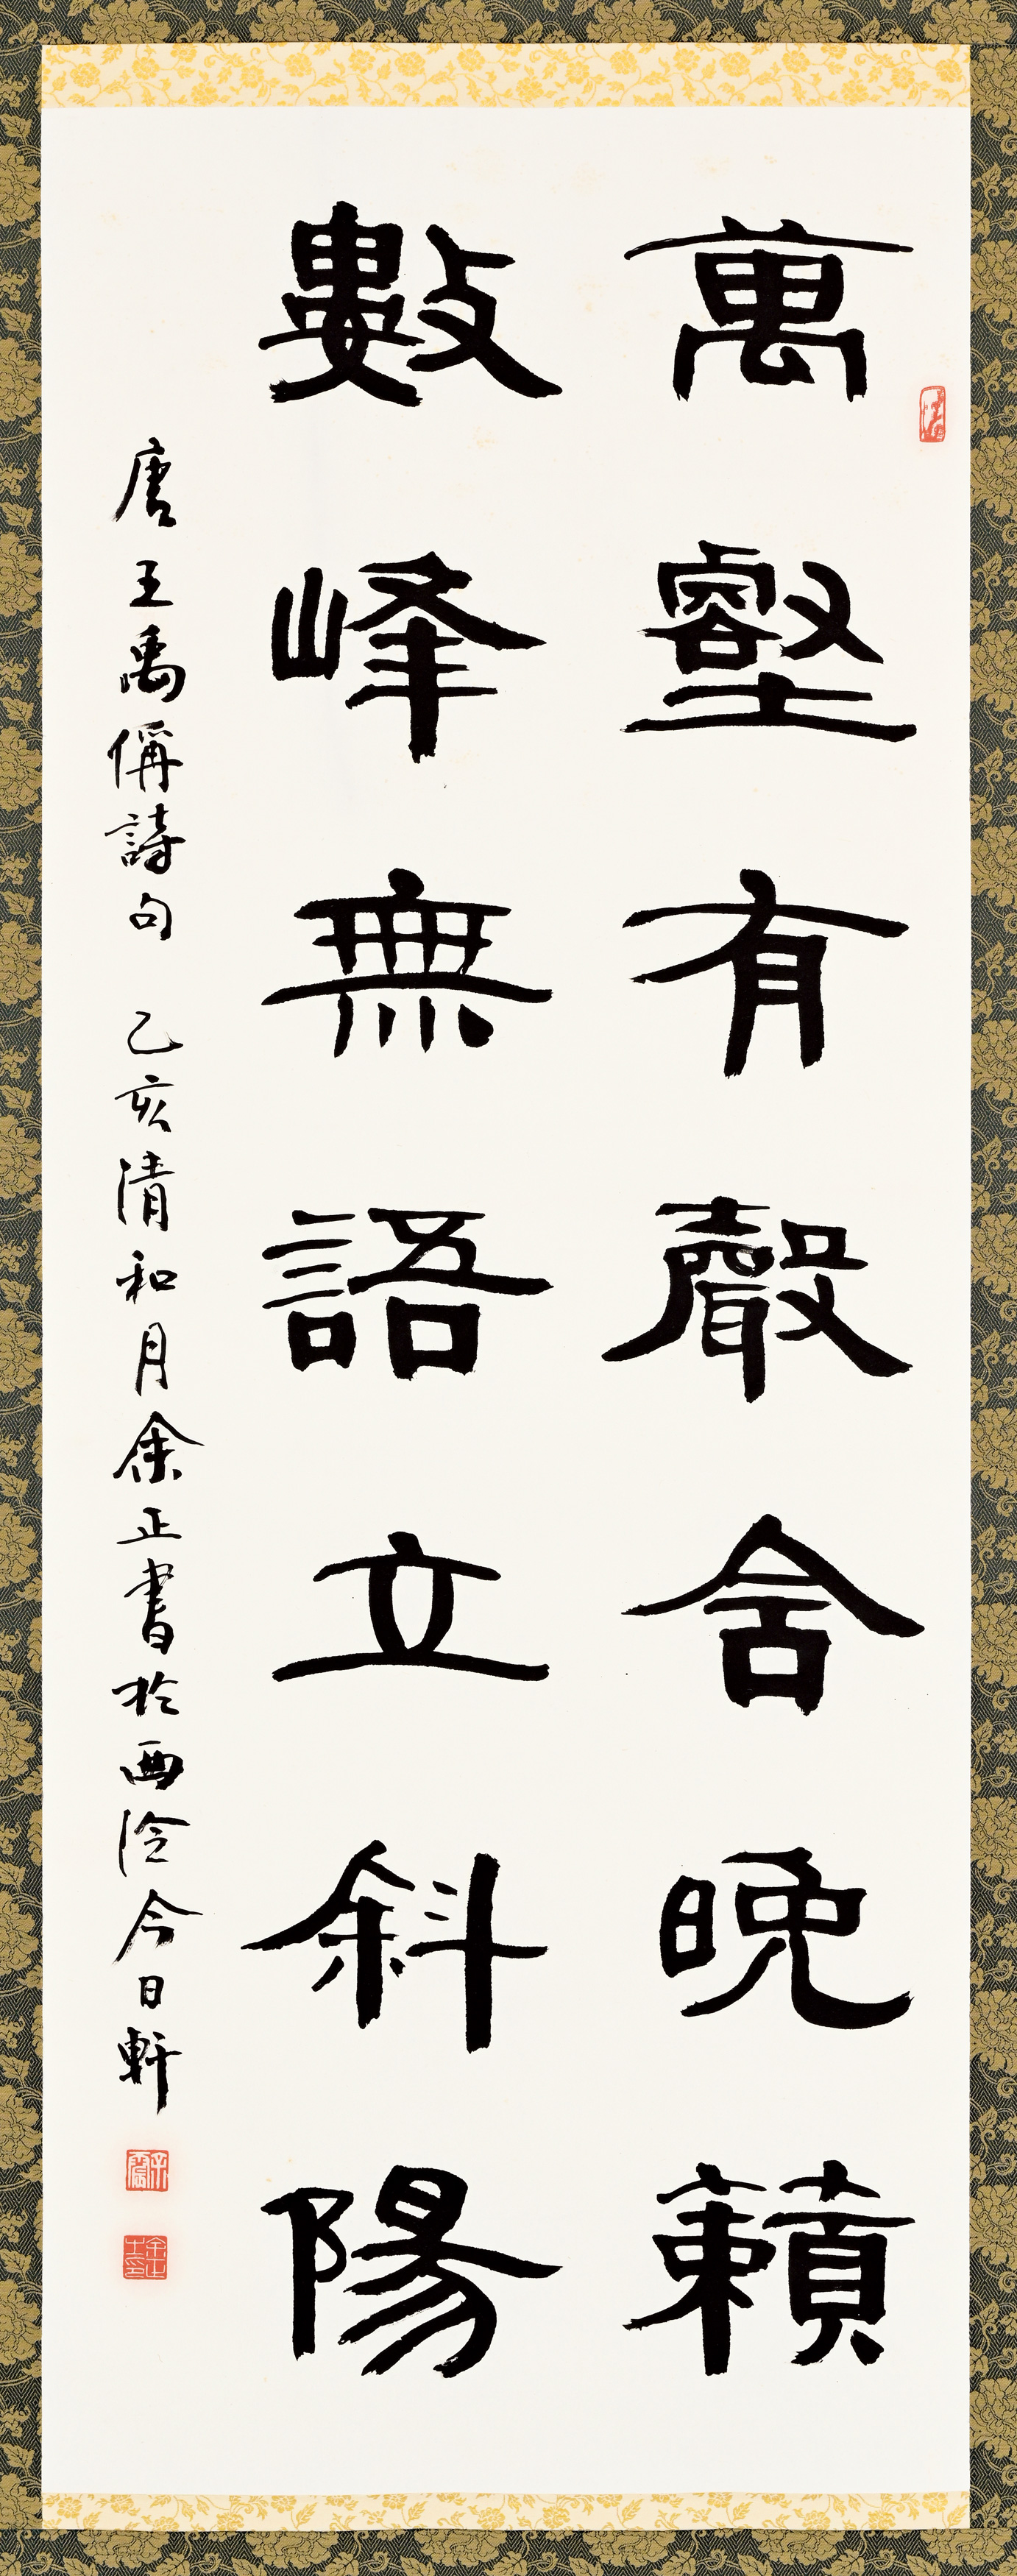 萬壑有聲含晚籟
數峰無語立斜陽
唐王禹偁詩句 乙亥清和月余正書於西泠今日軒
余正之印